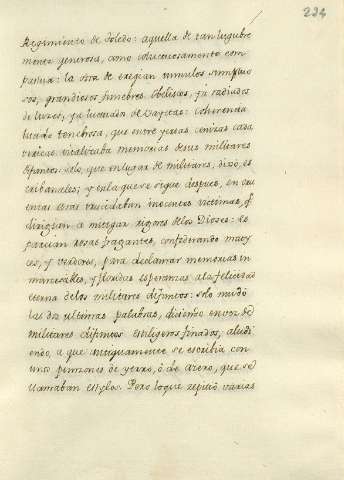 224
Regimiento de Toledo: aquella de tan lugubre
menor generosa, como obsequiosamente com
pasiva: la otra de eregian tumulos sumptuo
sos, grandiosos funebres obeliscos, ya
de luzes, ya de Capitas:
tenebrosa, que entre yertas cenizas cada
vitalizaba memorias desus militares
solo, que en lugar de militares, dixo, es
cribanales; y en la que se sigue despues, en cu
yas aras trucidaban inocentes victimas, q.e
dirigian a mitigar rigores delos Dioses: es
parcian rosas fragantes, confederando maiz
ces, y verdores, para declamar memorias in
marcesibles, y floridas esperanzas ala felicidad
eterna delos militares difuntos: solo mudó
las dos ultimas palabras, diciendo en voz de
militares difuntos estiligeros finados, aludi
endo, a que antiguamente se escribia con
unos punzones de yerro, ó de azero, que se
llamaban estylos. Pero loque repitió varias